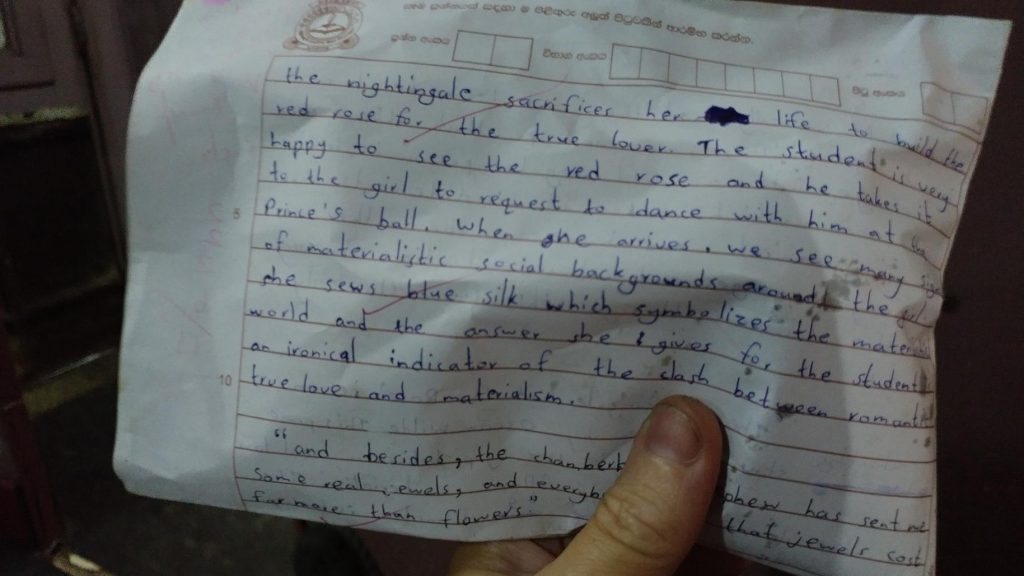 මෙම ප්‍රශ්නයක් සඳහා ම පිළිතුරු අලුත් පිටුවකින් ආරම්භ කරන්න.
ප්‍රශ්න අංකය විභාග අංකය පිටු අංකය
the nightingale sacrifices her life to build the
red rose for the true lover. The student is very
happy to see the red rose and he takes it
to the girl to request to dance with him at
5 Prince's ball. When she arrives, we see many
of materialistic social backgrounds around the girl
she sews blue silk which symbolizes the
world and the answer she gives for the student
an ironical indicator of the clash between
10 true love and materialism.
"and besides, the has sent me
some real jewels, and that jewels cost
far more than flowers."